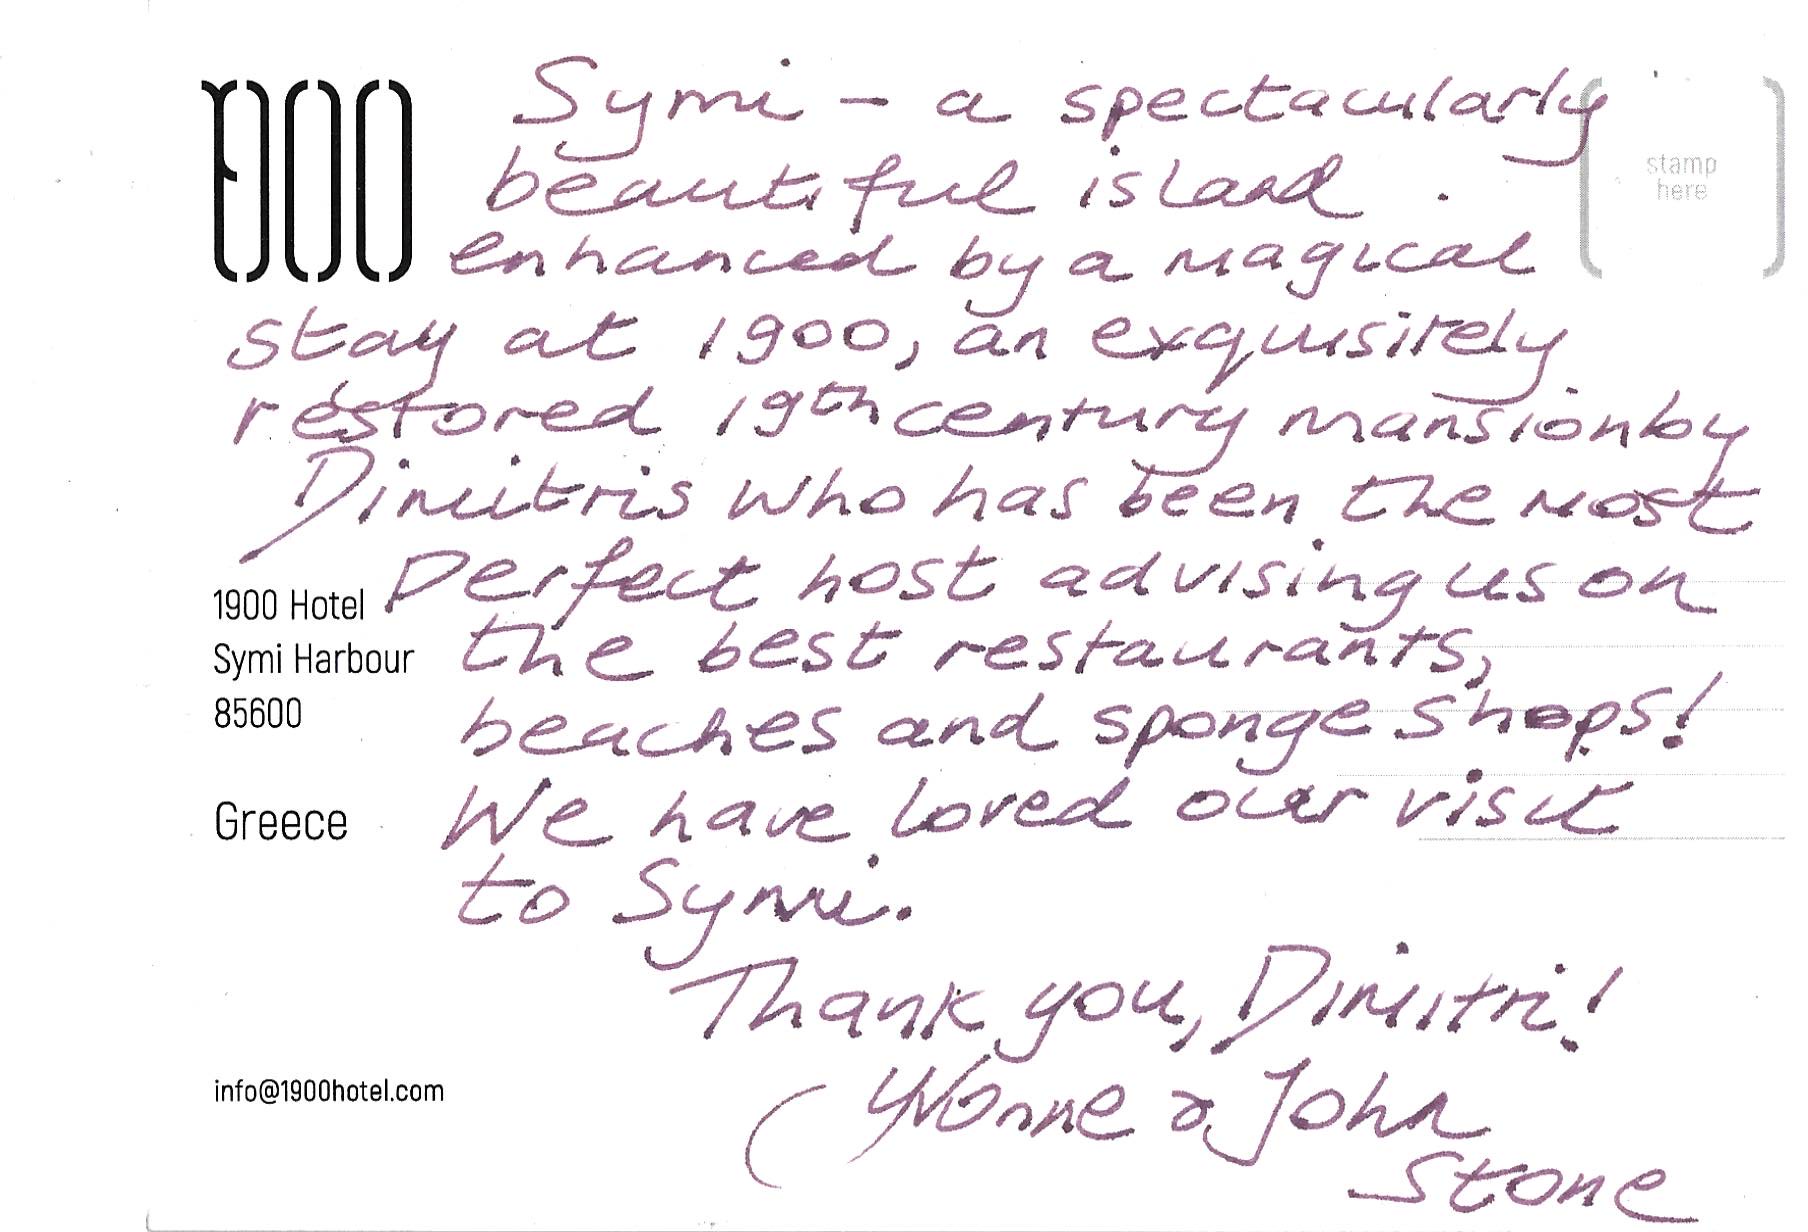 1900
Symi – a spectacularly
stamp
here
beautiful island .
enhanced by a magical
stay at 1900, an exquisitely
restored 19th century mansion by
Dimitris who has been the most
perfect host advising us on
the best restaurants,
beaches and sponge shops!
We have loved our visit
to Symi.
Thank you, Dimitri!
(Yvonne & John
Stone
1900 Hotel
Symi Harbour
85600
Greece
info@1900hotel.com